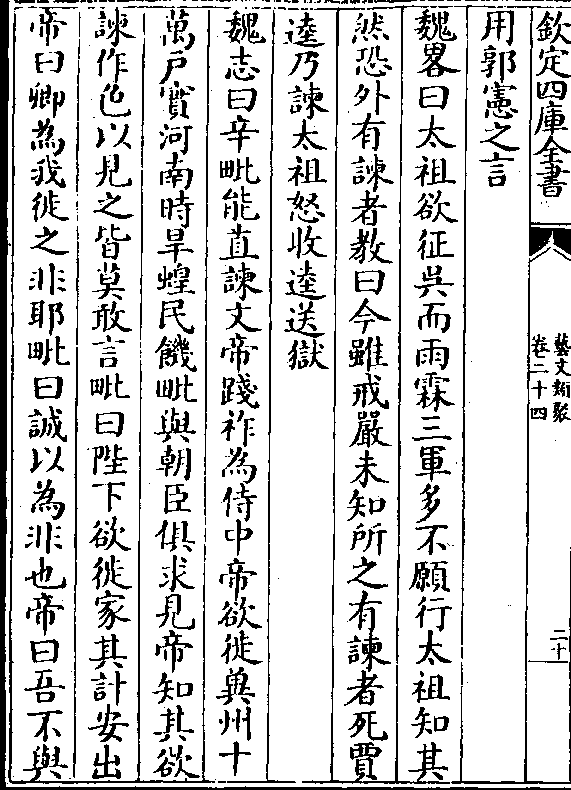 欽定四庫全書
藝文類聚
卷二十四
二十
用郭憲之言
魏畧曰太祖欲征吳而雨霖三軍多不願行太祖知其
然恐外有諫者教曰今雖戒嚴未知所之有諫者死賈
逵乃諫太祖怒收逵送獄
魏志曰辛毗能直諫文帝踐祚為侍中帝欲徙兾州十
萬戶實河南時旱蝗民饑毗與朝臣俱求見帝知其欲
諫作色以見之皆莫敢言毗曰陛下欲徙家其計安出
帝曰卿為我徙之非耶毗曰誠以為非也帝曰吾不與